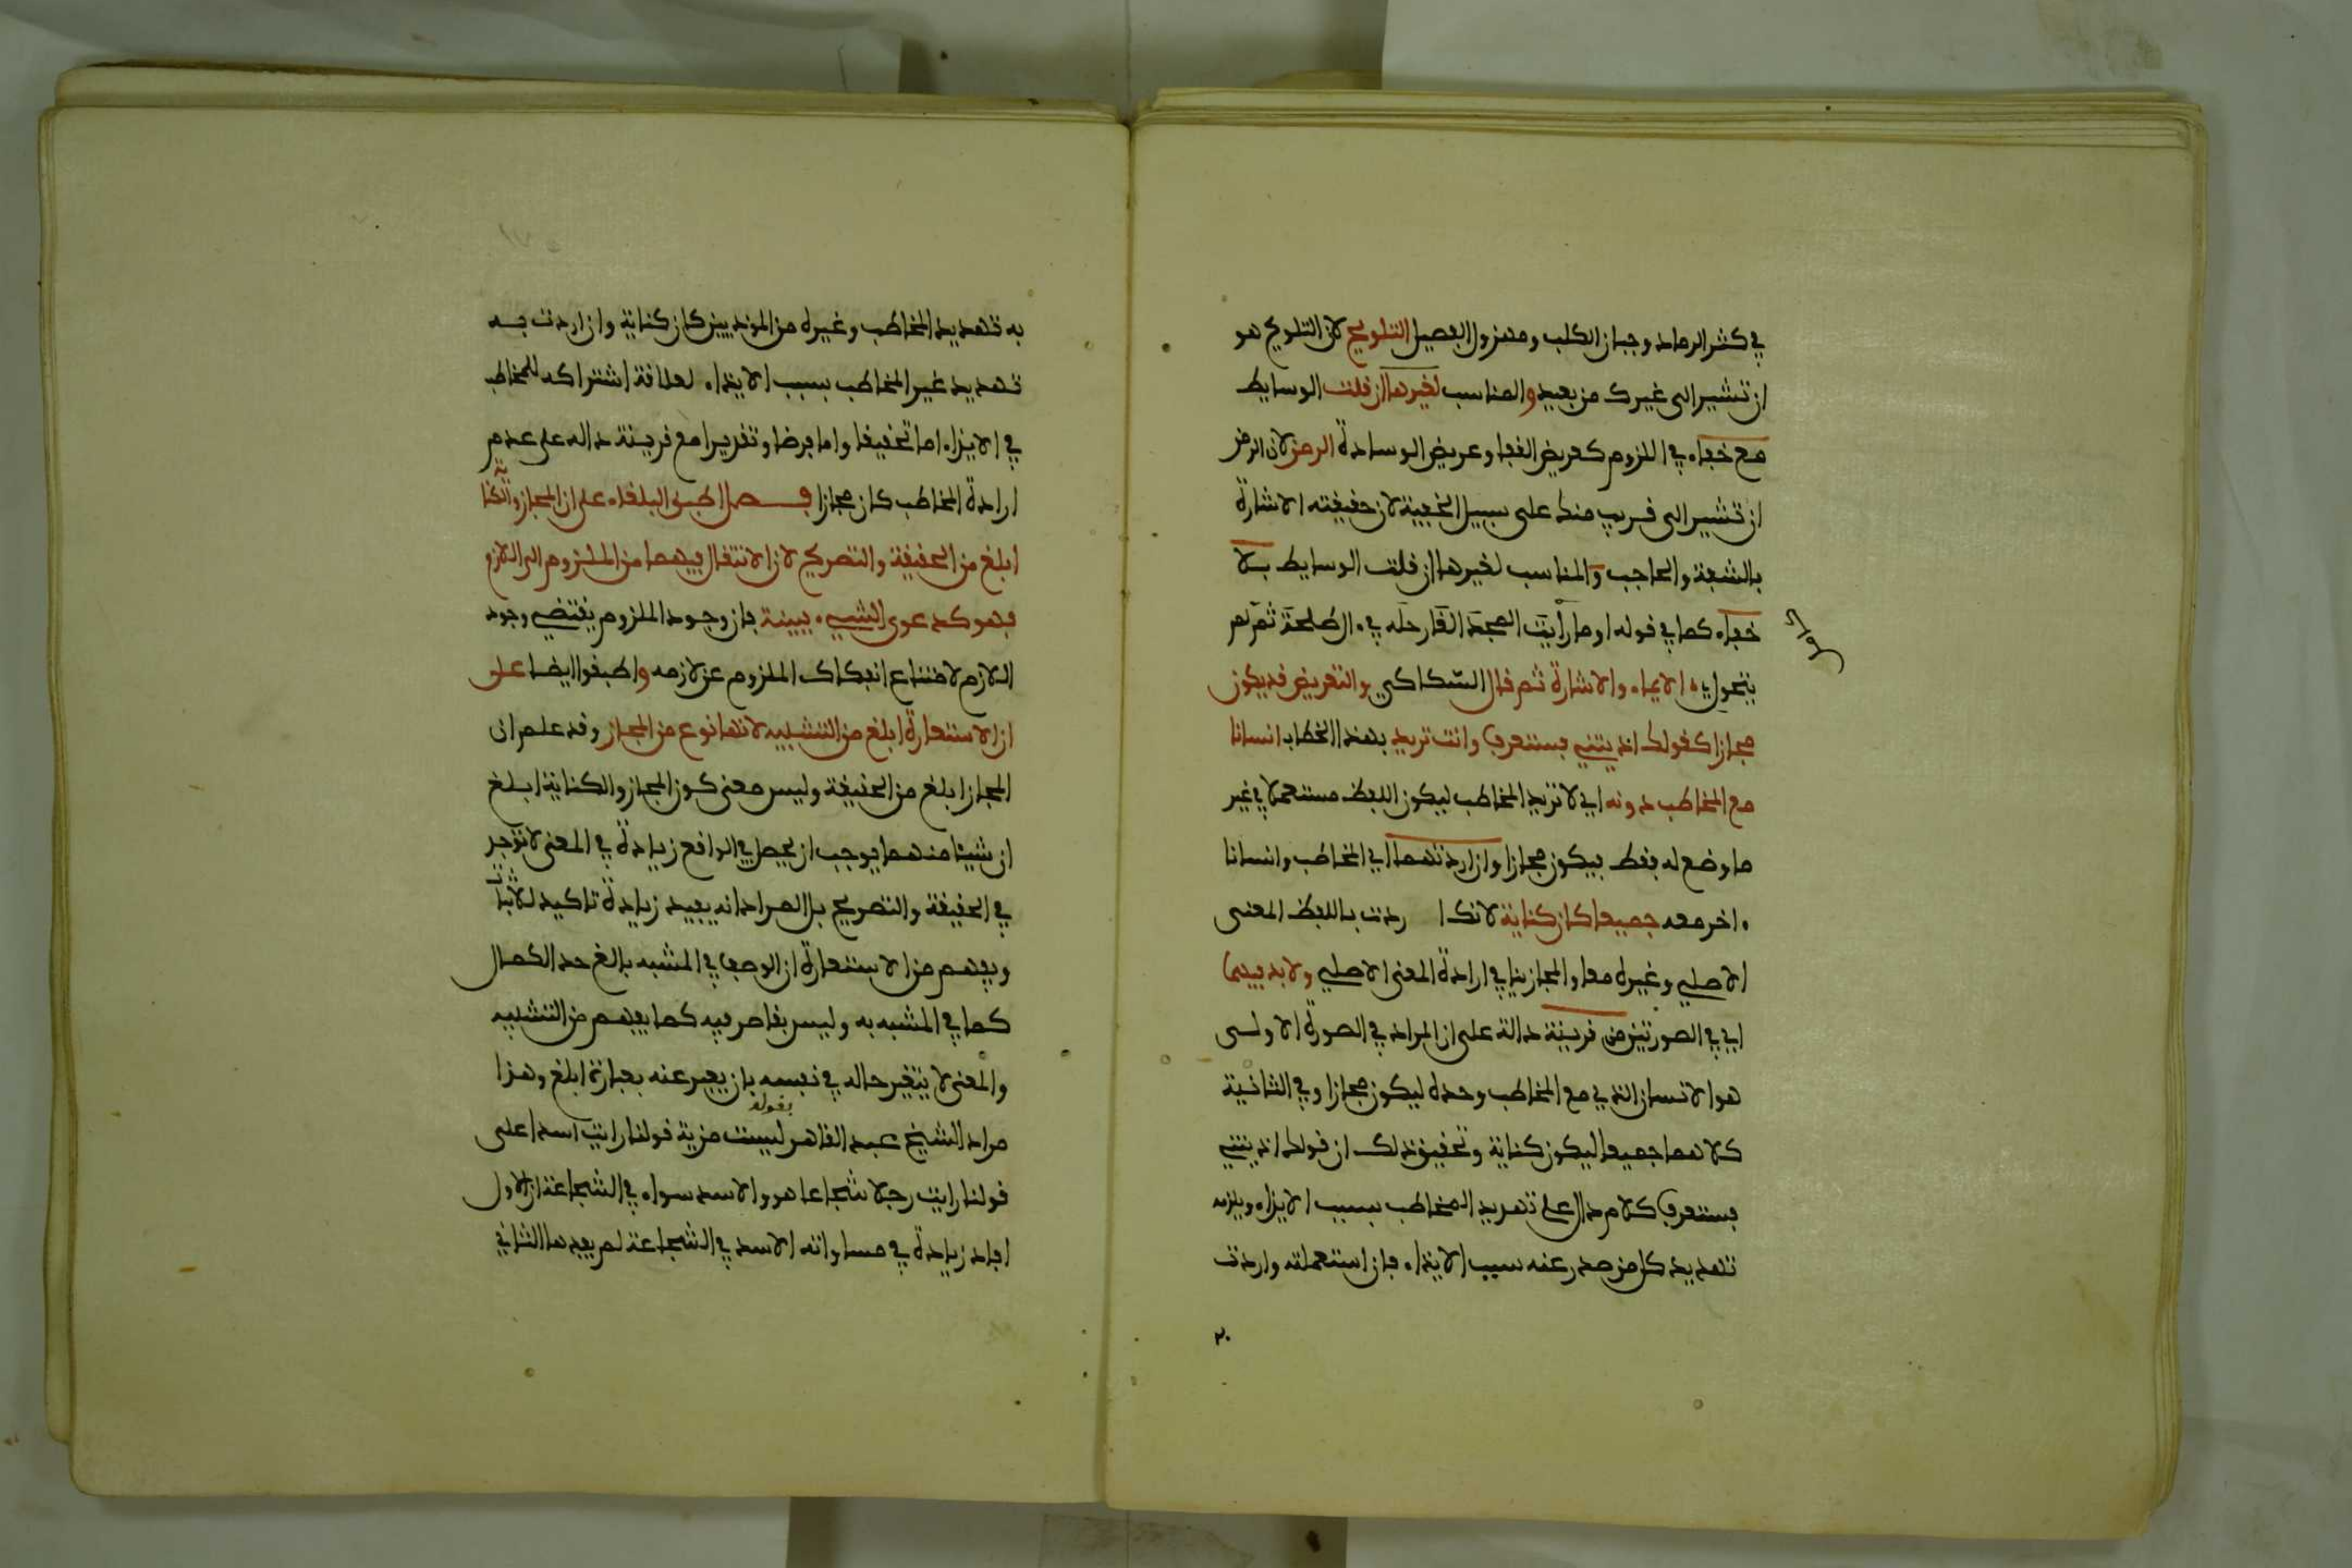 في كثير الرماد وجبان الكلب ومهزول الفصيل التلويح لان التلويح هو
ان تشير الى غيرك من بعيد والمناسب لغيرها ان قلت الوسايط
مع خفاء في اللزوم كعريض القفا وعريض الوسادة الرمز لان الرمز
ان تشير الى قريب منك على سبيل الخفية لان حقيقته الاشارة
بالشفة والحاجب والمناسب لغيرها ان قلت الوسايط بلا
خفاء كما في قوله اوما رأيت المجد القى رحله في ءال طلحة ثم لم
يتحول
الايماء والاشارة ثم قال السكاكي والتعريض قد يكون
مجازا كقولك اذيتني فستعرف وانت تريد بهذا الخطاب انسانا
مع المخاطب دونه اي لا تريد المخاطب ليكون اللفظ مستعملا في غير
ما وضع له فقط فيكون مجازا وان اردتهما اي المخاطب وانسانا
ءاخر معه جميعا كان كناية لانك اردت باللفظ المعنى
الاصلي وغيره معا والمجاز ينافي ارادة المعنى الاصلي ولا بد فيهما
اي في الصورتين من قرينة دالة على ان المراد في الصورة الاولى
هو الانسان الذي مع المخاطب وحده ليكون مجازا وفي الثانية
كلاهما جميعا ليكون كناية وتحقيق ذلك ان قولك اذيتني
فستعرف كلام دال على تهديد المخاطب بسبب الايذاء ويلزمه
تهديد كل من صدر عنه سبب الايذاء فان استعملته واردت
٢٠
به تهديد المخاطب وغيره من الموذيين كان كناية وان اردت به
تهديد غير المخاطب بسبب الايذاء لعلاقة اشتراكه للمخاطب
في الايذاء اما تحقيقا واما فرضا وتقديرا مع قرينة داله على عدم
ارادة المخاطب كان مجازا فصل اطبق البلغاء على ان المجاز والكناية
ابلغ من الحقيقة والتصريح لان الانتقال فيهما من الملزوم الى اللازم
فهو كدعوى الشيء ببينة فان وجود الملزوم يقتضي وجود
اللازم لامتناع انفكاك الملزوم عن لازمه واطبقوا ايضا على
ان الاستعارة ابلغ من التشبيه لانها نوع من المجاز وقد علم ان
المجاز ابلغ من الحقيقة وليس معنى كون المجاز والكناية ابلغ
ان شيئا منهما يوجب ان يحصل في الواقع زيادة في المعنى لا توجد
في الحقيقة والتصريح بل المراد انه يفيد زيادة تاكيد للاثبات
ويفهم من الاستعارة ان الوصف في المشبه بالغ حد الكمال
كما في المشبه به وليس بقاصر فيه كما يفهم من التشبيه
والمعنى لا يتغير حاله في نفسه بان يعبر عنه بعبارة ابلغ وهذا
مراد الشيخ عبد القاهر بقوله ليست مزية قولنا رايت اسدا على
قولنا رايت رجلا شجاعا هو والاسد سواء في الشجاعة ان الاول
افاد زيادة في مساواته الاسد في الشجاعة لم يفدها الثاني